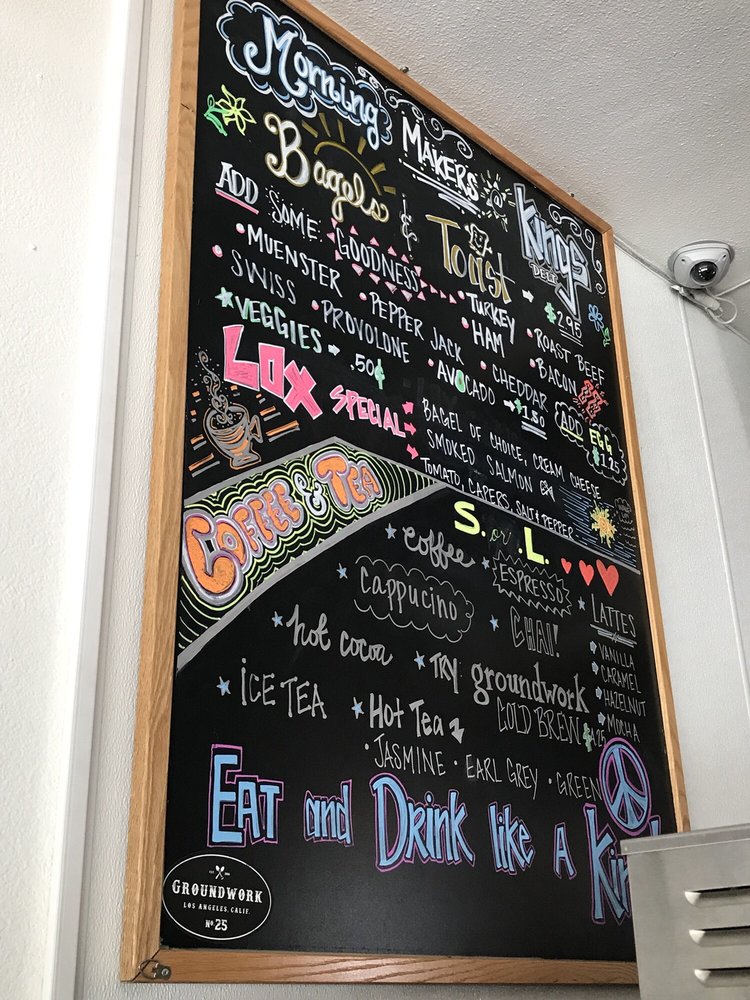 Morning
MAKERS @
Kings
DELI
Bagels & Toast → $2.95
ADD SOME GOODNESS
• MUENSTER • PEPPER JACK • TURKEY • ROAST BEEF
• SWISS • PROVOLONE • HAM • BACON
• AVOCADO • CHEDDAR → $1.50
★ VEGGIES → .50¢
ADD EGG
$1.25
LOX SPECIAL
→ BAGEL OF CHOICE, CREAM CHEESE
→ SMOKED SALMON
→ TOMATO, CAPERS, SALT & PEPPER
COFFEE & TEA
S. or L.
★ coffee
★ ESPRESSO
★ cappucino
★ CHAI!
★ LATTES
VANILLA
CARAMEL
HAZELNUT
MOCHA
★ hot cocoa
★ TRY groundwork
COLD BREW
★ ICE TEA
★ HOT TEA
• JASMINE • EARL GREY • GREEN
EAT and DRINK like A
GROUNDWORK
LOS ANGELES, CALIF.
No. 25